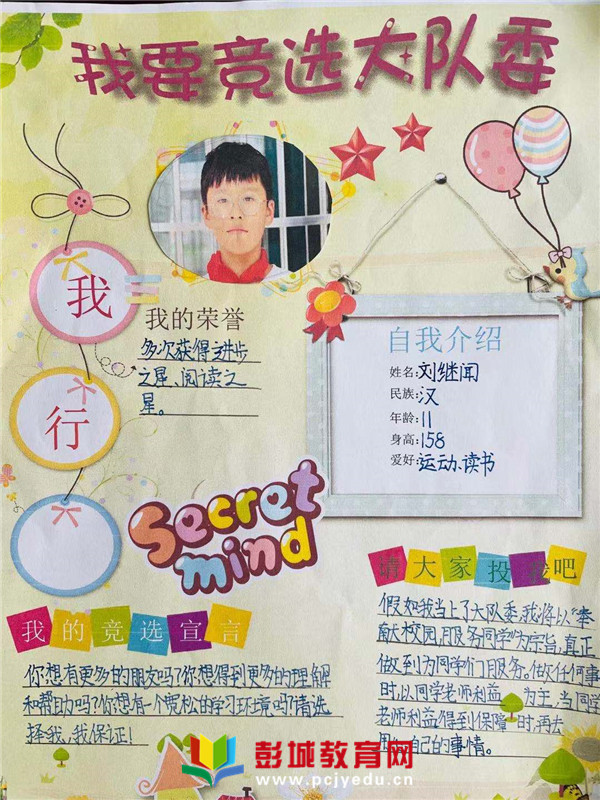 我要竞选大队委
我
行
我的荣誉
多次获得进步
之星、阅读之
星。
自我介绍
姓名:刘继闻
民族:汉
年龄:11
身高:158
爱好:运动、读书
Secret
mind
请大家投我吧
假如我当上了大队委,我将以“奉
献校园,服务同学”为宗旨,真正
做到为同学们服务。做任何事
时,以同学老师利益 为主,当同学
老师利益得到保障 时,再去
自己的事情。
我的竞选宣言
你想有更多的朋友吗?你想得到更多的理解
和帮助吗?你想有一个宽松的学习环境吗?请选
择我,我保证!
彭城教育网
www.pcjyedu.cn